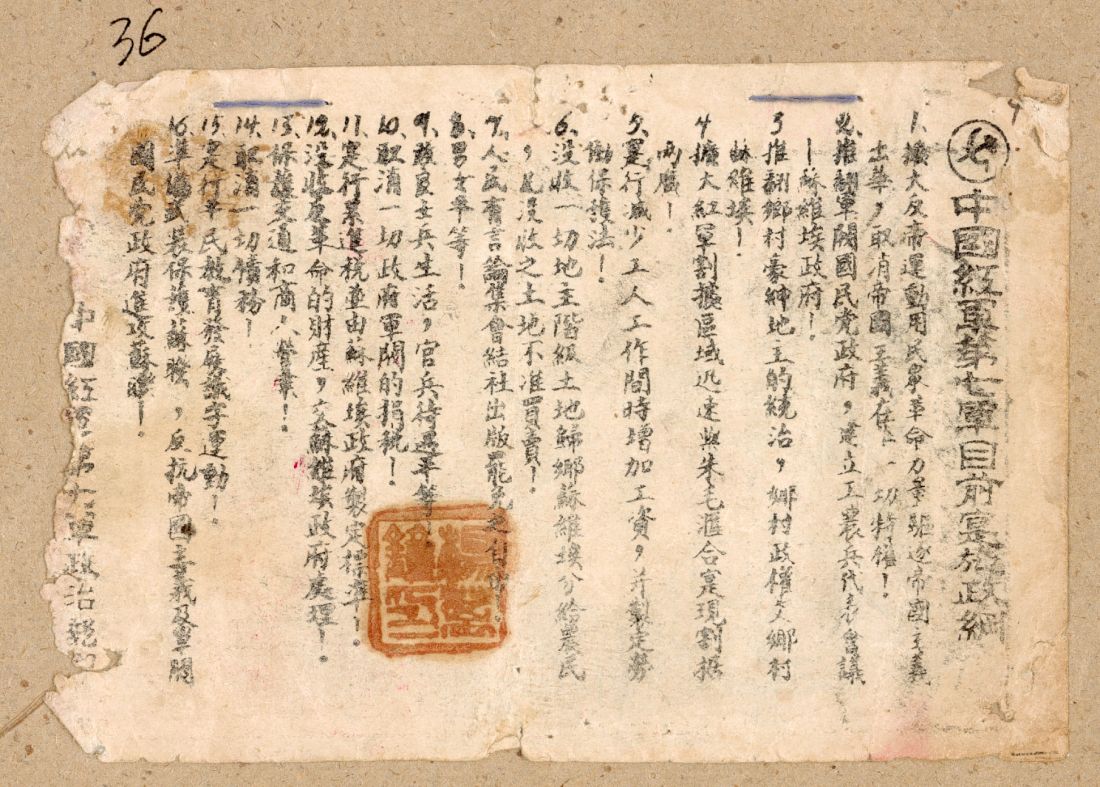 36
七
中國紅軍第七軍目前寔施政綱
1、擴大反帝運動用民眾革命力量驅逐帝國主義
出華,取消帝國主義在一切特權!
2、推翻軍閥國民党政府,建立工農兵代表會議
—蘇維埃政府!
3、推翻鄉村豪紳地主的統治,鄉村政權交鄉村
蘇維埃!
4、擴大紅軍割據區域迅速與朱毛滙合寔現割据
両廣!
5、寔行減少工人工作間時增加工資,并製定勞
働保護法!
6、沒收一切地主階級土地歸鄉蘇維埃分給農民
,凡沒收之土地不准買賣!
7、人民有言論集會結社出版罷免之自由!
8、男女平等!
9、改良士兵生活,官兵待遇平等!
10、取消一切政府軍閥的捐税!
11、寔行累進税並由蘇維埃政府製定標準!
12、沒收反革命的財產,交蘇維埃政府處理!
13、保護交通和商人營業!
14、取消一切債務!
15、寔行平民教育發展識字運動!
16、準備武裝保護蘇聯,反抗帝國主義及軍閥
國民党政府進攻蘇聯!
中國紅軍第七軍政治部